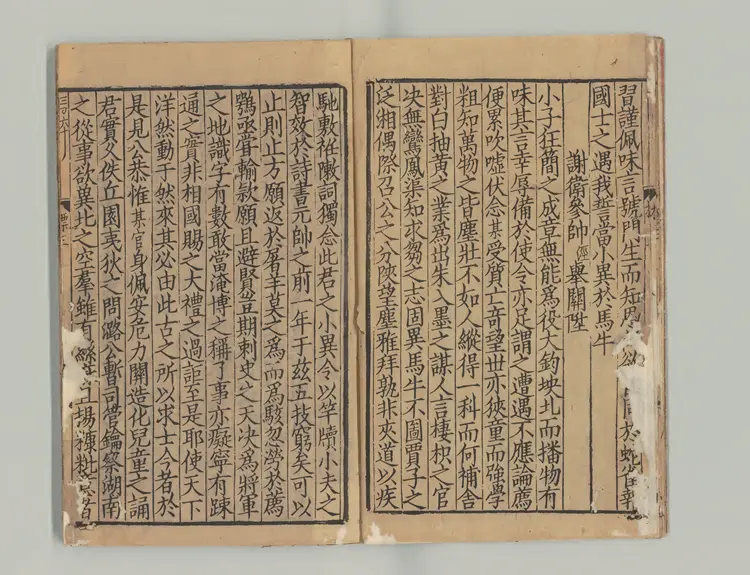 習謹佩味言號門生而知恩欲同於蛇雀報
國士之遇我誓當小異於馬牛
謝衛參帥涇舉關陞
小子狂簡之成章無能爲役大鈞坱圠而播物有
味其言幸辱備於使令亦足謂之遭遇不應論薦
便累吹噓伏念某受質亡奇望世亦狹童而強學
粗知萬物之皆塵壯不如人縱得一科而何補舍
對白抽黄之業爲出朱入墨之謀人言棲枳之官
决無鸞鳳渠知求芻之志固異馬牛不圖賈子之
泛相偶際召公之分陝望塵雅拜孰非夾道以疾
馳敷袵陳詞獨念此君之小異今以竿牘小夫之
智效於詩書元帥之前一年于兹五技窮矣可以
止則止方願返於屠羊莫之爲而爲駭忽勞於薦
鶚亟聳輸欵願且避賢豈期刺史之天决爲將軍
之地識字有數敢當淹博之稱了事亦癡寧有踈
通之實非相國賜之大禮之過詎至是耶使天下
洋然動于然來其必由此古之所以求士今者於
是見公恭惟某官身佩安危力關造化兒童之誦
君實久佚丘園夷狄之問潞公暫司管鑰粲湖南
之從事欲異北之空羣雖有生場糠粃者